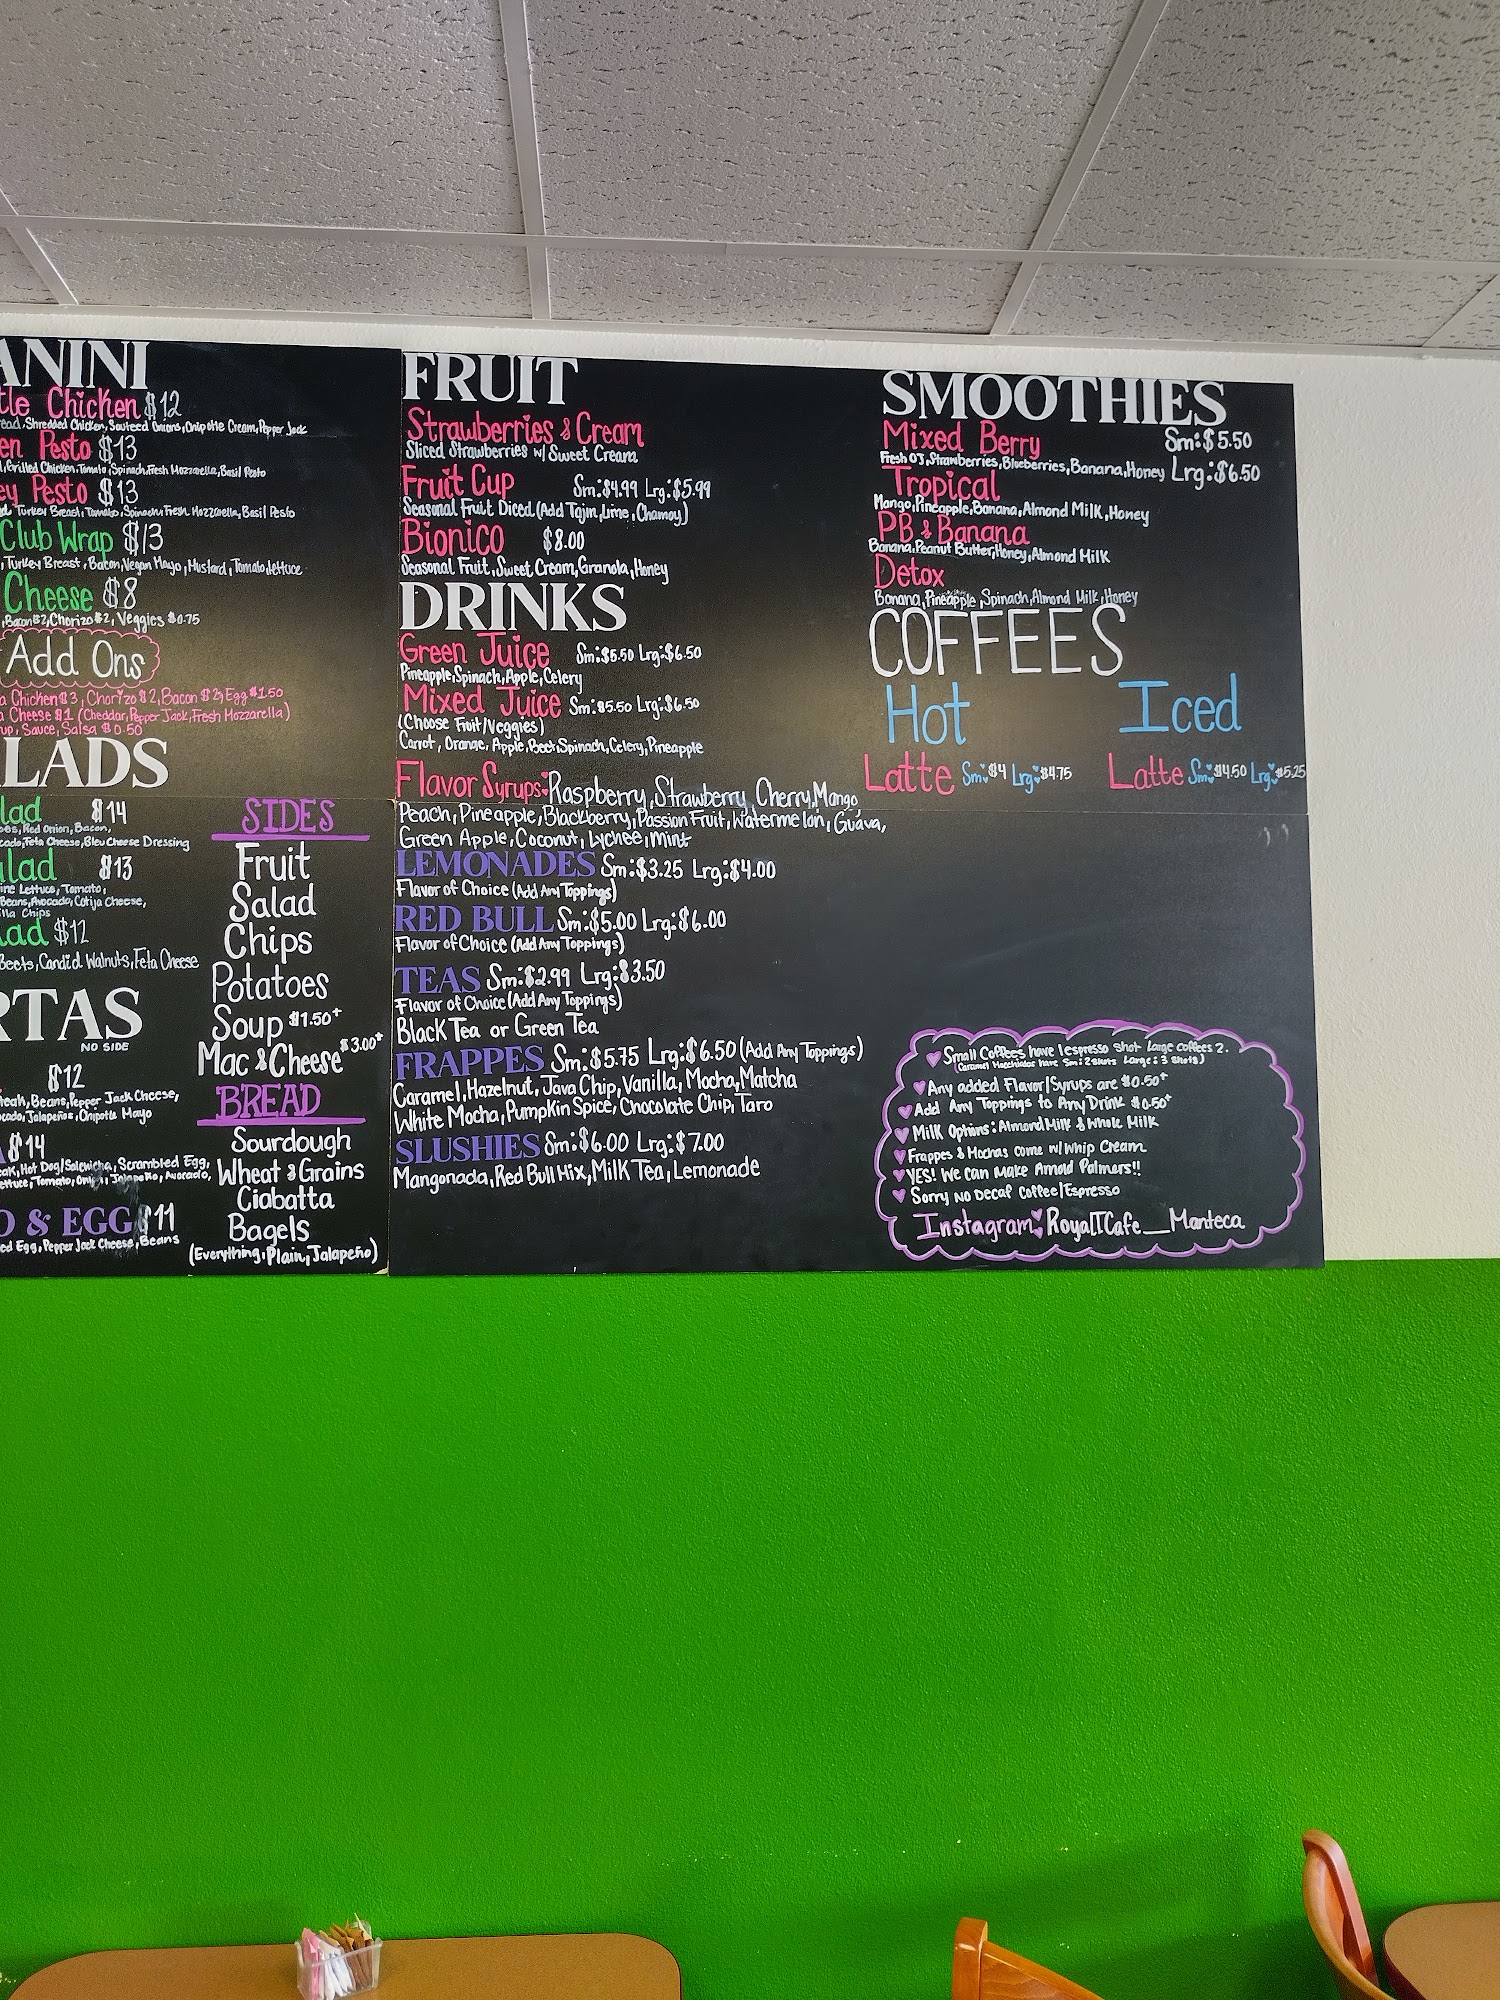 ANINI
tle Chicken $12
ead, Shredded Chicken, Sauteed Onions, Chipotle Cream, Pepper Jack
en Pesto $13
, Grilled Chicken, Tomato, Spinach, Fresh Mozzarella, Basil Pesto
ey Pesto $13
Turkey Breast, Tomato, Spinach, Fresh Mozzarella, Basil Pesto
Club Wrap $13
, Turkey Breast, Bacon, Vegan Mayo, Mustard, Tomato, lettuce
Cheese $8
, Bacon $2, Chorizo $2, Veggies $0.75
Add Ons
a Chicken $3, Chorizo $2, Bacon $2, Egg $1.50
a Cheese $1 (Cheddar, Pepper Jack, Fresh Mozzarella)
up, Sauce, Salsa $0.50
LADS
lad $14
oes, Red Onion, Bacon,
cado, Feta Cheese, Bleu Cheese Dressing
lad $13
ine Lettuce, Tomato,
Beans, Avocado, Cotija Cheese,
lla Chips
lad $12
Beets, Candid Walnuts, Feta Cheese
RTAS
NO SIDE
$12
teak, Beans, Pepper Jack Cheese,
cado, Jalapeños, Chipotle Mayo
A $14
eak, Hot Dog/Salchicha, Scrambled Egg,
ettuce, Tomato, Onion, Jalapeño, Avocado,
O & EGG $11
ed Egg, Pepper Jack Cheese, Beans
SIDES
Fruit
Salad
Chips
Potatoes
Soup $1.50+
Mac & Cheese $3.00+
BREAD
Sourdough
Wheat & Grains
Ciabatta
Bagels
(Everything, Plain, Jalapeño)
FRUIT
Strawberries & Cream
Sliced Strawberries w/ Sweet Cream
Fruit Cup Sm:$4.99 Lrg:$5.99
Seasonal Fruit Diced (Add Tajin, Lime, Chamoy)
Bionico $8.00
Seasonal Fruit, Sweet Cream, Granola, Honey
DRINKS
Green Juice Sm:$5.50 Lrg:$6.50
Pineapple, Spinach, Apple, Celery
Mixed Juice Sm:$5.50 Lrg:$6.50
(Choose Fruit/Veggies)
Carrot, Orange, Apple, Beet, Spinach, Celery, Pineapple
Flavor Syrups: Raspberry, Strawberry, Cherry, Mango,
Peach, Pineapple, Blackberry, Passion Fruit, Watermelon, Guava,
Green Apple, Coconut, Lychee, Mint
LEMONADES Sm:$3.25 Lrg:$4.00
Flavor of Choice (Add Any Toppings)
RED BULL Sm:$5.00 Lrg:$6.00
Flavor of Choice (Add Any Toppings)
TEAS Sm:$2.99 Lrg:$3.50
Flavor of Choice (Add Any Toppings)
Black Tea or Green Tea
FRAPPES Sm:$5.75 Lrg:$6.50 (Add Any Toppings)
Caramel, Hazelnut, Java Chip, Vanilla, Mocha, Matcha
White Mocha, Pumpkin Spice, Chocolate Chip, Taro
SLUSHIES Sm:$6.00 Lrg:$7.00
Mangonada, Red Bull Mix, Milk Tea, Lemonade
SMOOTHIES
Mixed Berry Sm:$5.50
Fresh OJ, Strawberries, Blueberries, Banana, Honey Lrg:$6.50
Tropical
Mango, Pineapple, Banana, Almond Milk, Honey
PB & Banana
Banana, Peanut Butter, Honey, Almond Milk
Detox
Banana, Pineapple, Spinach, Almond Milk, Honey
COFFEES
Hot Iced
Latte Sm:$4 Lrg:$4.75 Latte Sm:$4.50 Lrg:$5.25
Small Coffees have 1 espresso shot large coffees 2.
(Caramel Macchiatos have Sm: 2 shots Large: 3 shots)
Any added Flavor/Syrups are $0.50+
Add Any Toppings to Any Drink $0.50+
Milk Options: Almond Milk & Whole Milk
Frappes & Mochas come w/ Whip Cream
YES! We can Make Arnold Palmers!!
Sorry No Decaf Coffee/Espresso
Instagram: RoyalTCafe_Manteca